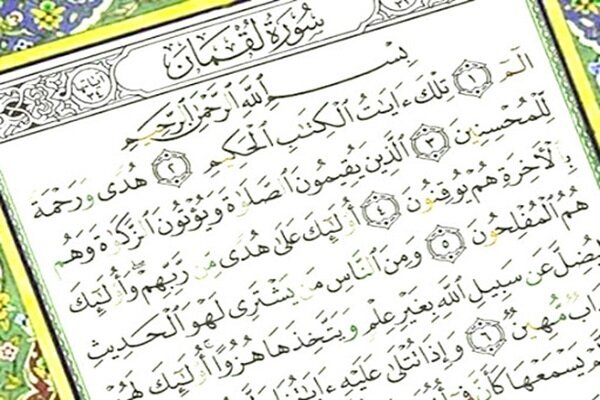 سُورَةُ لُقْمَانَ
بِسْمِ اللَّهِ الرَّحْمَٰنِ الرَّحِيمِ
الٓمٓ ١ تِلْكَ ءَايَٰتُ الْكِتَٰبِ الْحَكِيمِ ٢ هُدًى وَرَحْمَةً
لِّلْمُحْسِنِينَ ٣ الَّذِينَ يُقِيمُونَ الصَّلَوٰةَ وَيُؤْتُونَ الزَّكَوٰةَ وَهُم
بِالْءَاخِرَةِ هُمْ يُوقِنُونَ ٤ أُوْلَٰٓئِكَ عَلَىٰ هُدًى مِّن رَّبِّهِمْ وَأُوْلَٰٓئِكَ
هُمُ الْمُفْلِحُونَ ٥ وَمِنَ النَّاسِ مَن يَشْتَرِى لَهْوَ الْحَدِيثِ
لِيُضِلَّ عَن سَبِيلِ اللَّهِ بِغَيْرِ عِلْمٍ وَيَتَّخِذَهَا هُزُوًا أُوْلَٰٓئِكَ لَهُمْ
مُّهِينٌ ٦ وَإِذَا تُتْلَىٰ عَلَيْهِ ءَايَٰتُنَا
يَسْمَعْهَا كَأَنَّ فِىٓ